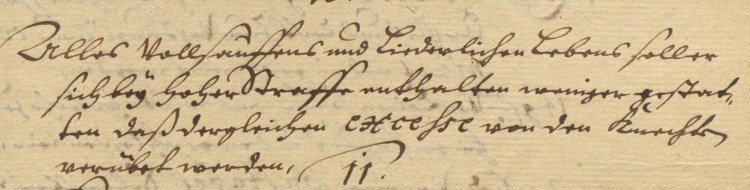 Alles Vollsauffens und Liederlichen Lebens soll er
sich bey hoher Straffe enthalten weniger gestat-
ten daß dergleichen excesse von den Knechten
verübet werden, 11.